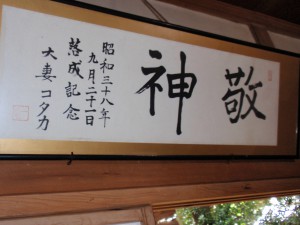 敬神
昭和三十八年
九月二十一日
落成記念
大妻コタカ